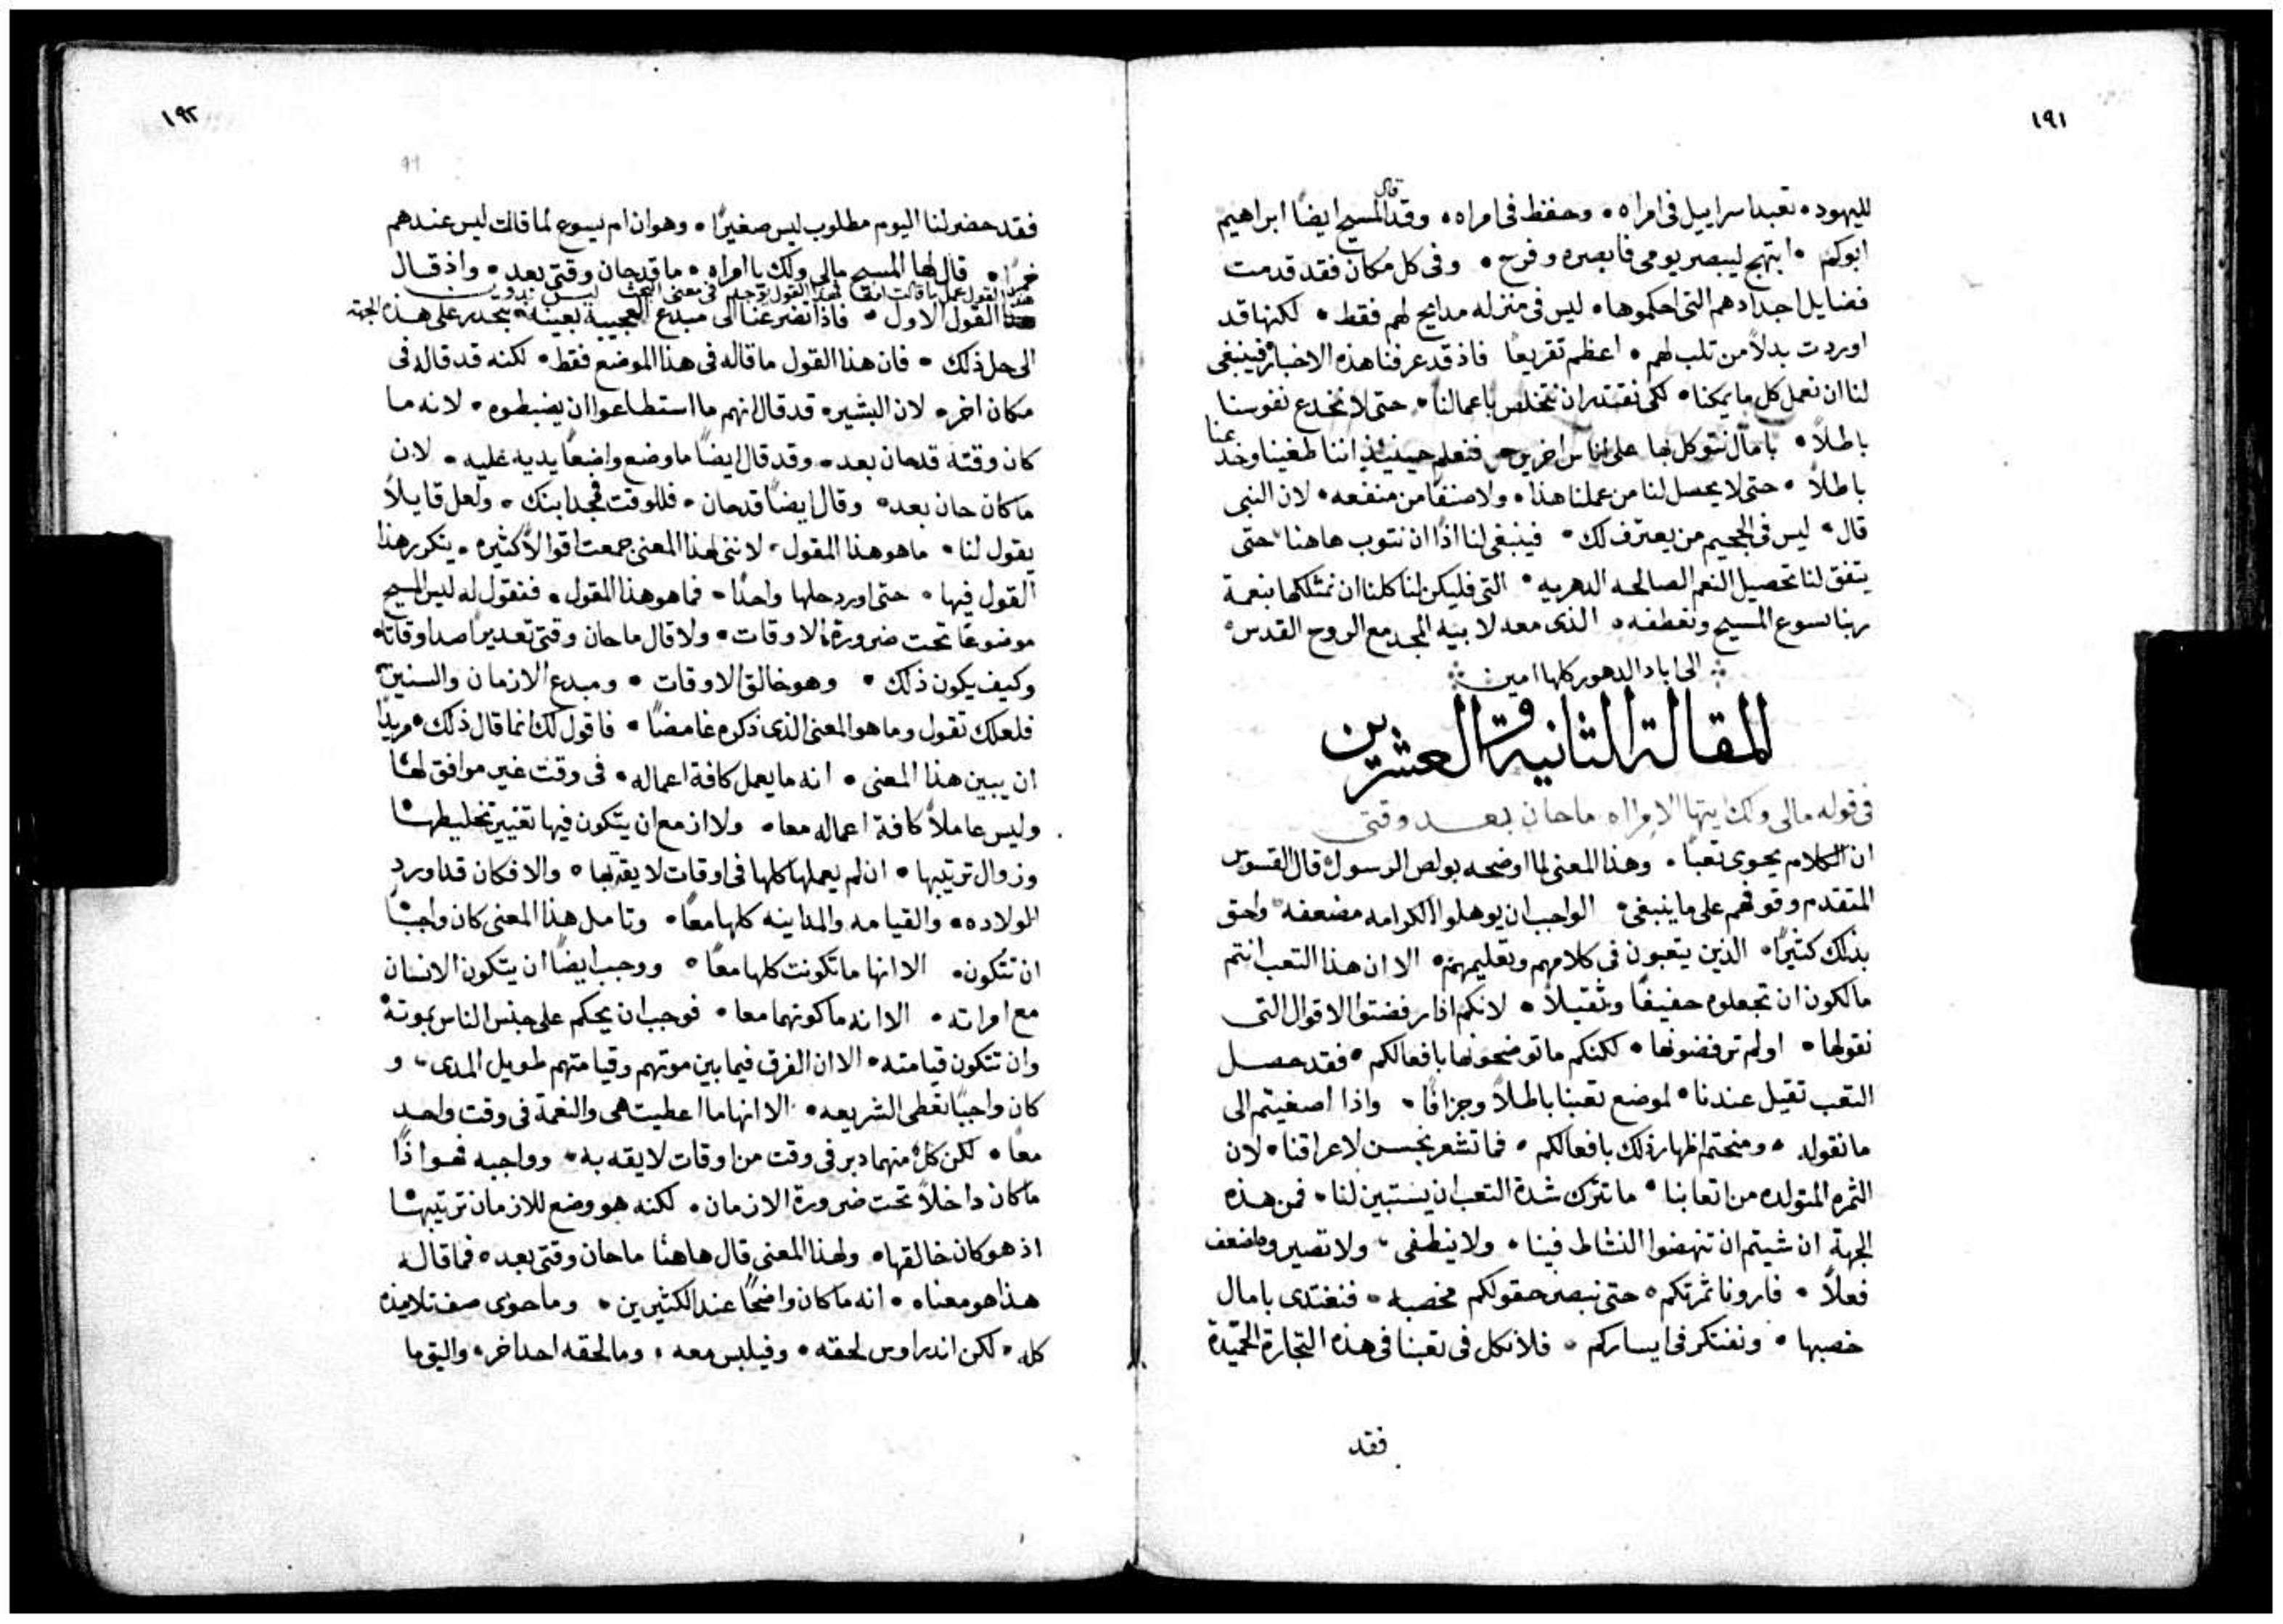 ١٩١
لليهود • تعبد اسراييل فى امراه • وحفظ فى امراه • وقد قال المسيح ايضًا ابراهيم
ابوكم • ابتهج ليبصر يومى فابصره وفرح • وفى كل مكان فقد قدمت
فضايل اجدادهم التى احكموها • ليس فى منزله مدايح لهم فقط • لكنها قد
اوردت بدلاً من تلب لهم • اعظم تقريعًا فاذ قد عرفنا هذه الاخبار فينبغى
لنا ان نعمل كل ما يمكنا • لكى نقتدر ان نتخلص باعمالنا • حتى لا نخدع نفوسنا
باطلاً • بامال نتوكل بها على اناس اخرين • فنعلم حينيذٍ اننا طغينا وخدعنا
باطلاً • حتى لا يحصل لنا من عملنا هذا • ولا صنفًا من منفعه • لان النبى
قال • ليس فى الجحيم من يعترف لك • فينبغى لنا اذًا ان نتوب هاهنا حتى
يتفق لنا تحصيل النعم الصالحه الدهريه • التى فليكن لنا كلنا ان نمتلكها بنعمة
ربنا يسوع المسيح وتعطفه • الذى معه لابيه المجد مع الروح القدس •
الى اباد الدهور كلها امين
المقالة الثانية والعشرين
فى قوله مالى ولك ايتها الامراه ما حان بعد وقتى
ان الكلام يحوى تعبًا • وهذا المعنى لما اوضحه بولص الرسول قال القسوس
المتقدم وقوفهم على ما ينبغى • الواجب ان يوهلوا الكرامه مضعفه • واحق
بذلك كثيرًا • الذين يتعبون فى كلامهم وتعليمهم • الا ان هذا التعب انتم
مالكون ان تجعلوه خفيفًا وثقيلاً • لانكم اذا رفضتوا الاقوال التى
نقولها • او لم ترفضونها • لكنكم ما توضحونها بافعالكم • فقد حصل
التعب ثقيل عندنا • لموضع تعبنا باطلاً وجزافًا • واذا اصغيتم الى
ما نقوله • ومنحتم اظهار ذلك بافعالكم • فما تشعر بحس لاعراقنا • لان
الثمره المتولده من اتعابنا • ما تترك شدة التعب ان يستبين لنا • فمن هذه
الجهة ان شيتم ان تنهضوا النشاط فينا • ولا ينطفى • ولا تصيروه اضعف
فعلاً • فارونا ثمرتكم • حتى نبصر حقولكم مخصبه • فنغتدى بامال
خصبها • ونفتكر فى ايساركم • فلا نكل فى تعبنا فى هذه التجارة الحميدة
فقد
١٩٢
فقد حضر لنا اليوم مطلوب ليس صغيرًا • وهو ان ام يسوع لما قالت ليس عندهم
خمرًا • قال لها المسيح مالى ولك يا امراه • ما قد حان وقتى بعد • واذ قال
هذا القول عمل ما قالت امه
القول الاول • فاذا تضرعنا الى مبدع العجيبة بعينه • ينحدر على هذه الجهة
الى حل ذلك • فان هذا القول ما قاله فى هذا الموضع فقط • لكنه قد قاله فى
مكان اخر • لان البشير • قد قال انهم ما استطاعوا ان يضبطوه • لانه ما
كان وقته قد حان بعد • وقد قال ايضًا ما وضع واضعًا يديه عليه • لان
ما كان حان بعد • وقال ايضًا قد حان • فللوقت مجد ابنك • ولعل قايلاً
يقول لنا • ما هو هذا المقول • لاننى لهذا المعنى جمعت اقوالاً كثيره • يتكرر هذا
القول فيها • حتى اورد حلها واحدًا • فما هو هذا المقول • فنقول له ليس المسيح
موضوعًا تحت ضرورة الاوقات • ولا قال ما حان وقتى بعد يراصد اوقاته •
وكيف يكون ذلك • وهو خالق الاوقات • ومبدع الازمان والسنين •
فلعلك تقول وما هو المعنى الذى ذكره غامضًا • فاقول لك انما قال ذلك • مريدًا
ان يبين هذا المعنى • انه ما يعمل كافة اعماله • فى وقت غير موافق لها
وليس عاملاً كافة اعماله معا • ولا ازمع ان يتكون فيها تغيير تخليطها
وزوال ترتيبها • ان لم يعملها كلها فى اوقات لايقة بها • والا فكان قد اورد
المولاده • والقيامه والمداينه كلها معًا • وتامل هذا المعنى كان واجبًا
ان تتكون • الا انها ما تكونت كلها معًا • ووجب ايضًا ان يتكون الانسان
مع امراته • الا انه ما كونهما معا • فوجب ان يحكم على جنس الناس بموته
وان تتكون قيامته • الا ان الفرق فيما بين موتهم وقيامتهم طويل المدى • و
كان واجبًا تعطى الشريعه • الا انها ما اعطيت هى والنعمة فى وقت واحد
معًا • لكن كلٌ منهما دبر فى وقت من اوقات لايقه به • وواجبه فهو اذًا
ما كان داخلاً تحت ضرورة الازمان • لكنه هو وضع للازمان ترتيبها
اذ هو كان خالقها • ولهذا المعنى قال هاهنا ما حان وقتى بعد • فما قاله
هذا هو معناه • انه ما كان واضحًا عند الكثيرين • وما حوى صف تلاميذه
كله • لكن اندراوس لحقه • وفيلبس معه • وما لحقه احد اخر • واليق ما